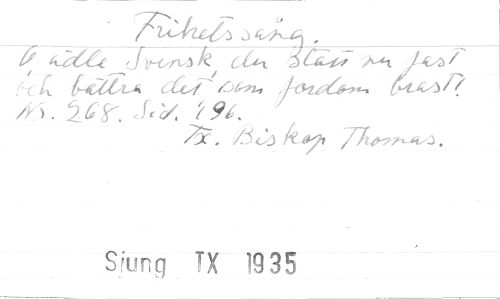 Frihetssång.
O ädle Svensk, du statt nu fast
och bättra det, som fordom brast!
Nr. 268. Sid. 196.
Tx. Biskop Thomas.
Sjung TX 1935